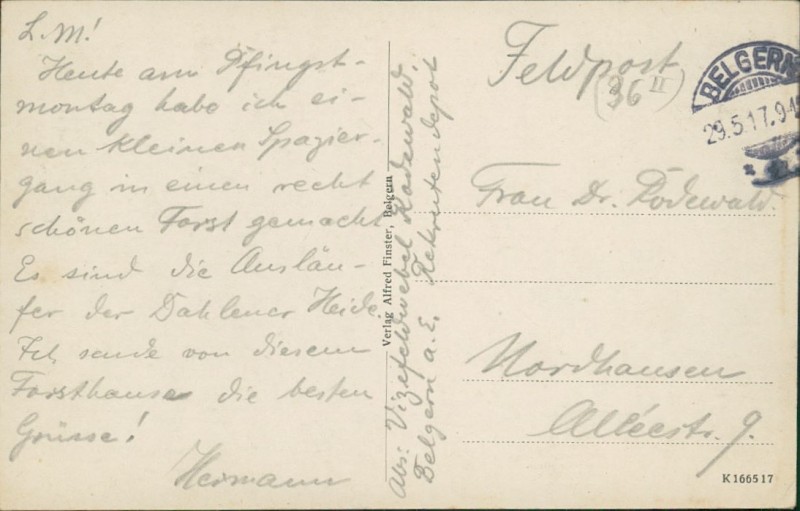 L. M!
Heute am Pfingst-
montag habe ich ei-
nen kleinen Spazier-
gang in einen recht
schönen Forst gemacht
Es sind die Ausläu-
fer der Dahlener Heide.
Ich sende von diesem
Forsthause die besten
Grüsse!
Hermann
Verlag Alfred Finster, Belgern
Abs: Vizefeldwebel Rodewald,
Belgern a. E. Rekrutendepot
Feldpost
(36 II)
BELGERN
29.5.17.9-1
Frau Dr. Rodewald.
Nordhausen
Alleestr. 9.
K 166517